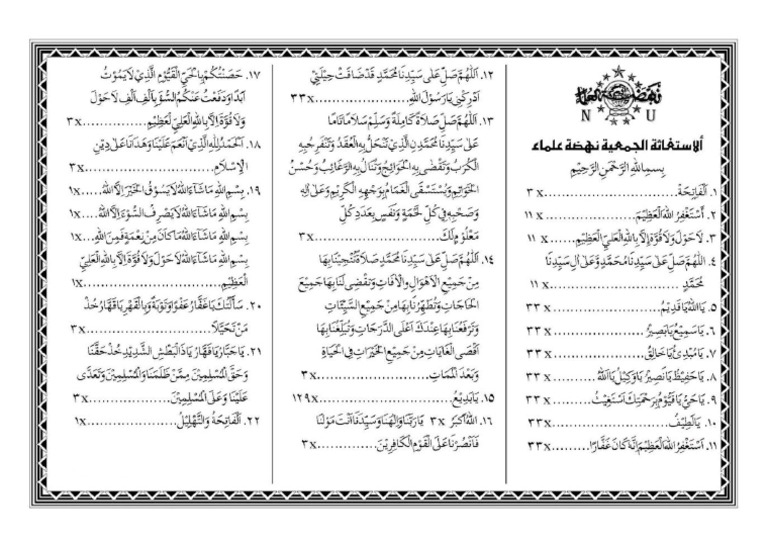 نهضة العلماء
N U
ألاستغاثة الجمعية نهضة علماء
بِسْمِ اللهِ الرَّحْمٰنِ الرَّحِيْمِ
١. اَلْفَاتِحَةُ.......................٣ x
٢. أَسْتَغْفِرُ اللهَ الْعَظِيْمَ...........١١ x
٣. لَاحَوْلَ وَلَا قُوَّةَ إِلَّا بِاللهِ الْعَلِيِّ الْعَظِيْمِ.....١١ x
٤. اَللّٰهُمَّ صَلِّ عَلَى سَيِّدِنَا مُحَمَّدٍ وَعَلَى اٰلِ سَيِّدِنَا
مُحَمَّدٍ.......................١١ x
٥. يَا اَللهُ يَاقَدِيْمُ....................٣٣ x
٦. يَاسَمِيْعُ يَابَصِيْرُ..................٣٣ x
٧. يَامُبْدِئُ يَاخَالِقُ..................٣٣ x
٨. يَاحَفِيْظُ يَانَصِيْرُ يَاوَكِيْلُ يَااَللهُ.....٣٣ x
٩. يَاحَيُّ يَاقَيُّوْمُ بِرَحْمَتِكَ اَسْتَغِيْثُ....٣٣ x
١٠. يَالَطِيْفُ........................٣٣ x
١١. اَسْتَغْفِرُ اللهَ الْعَظِيْمَ اِنَّهُ كَانَ غَفَّارًا.....٣٣ x
١٢. اَللّٰهُمَّ صَلِّ عَلَى سَيِّدِنَا مُحَمَّدٍ قَدْ ضَاقَتْ حِيْلَتِيْ
اَدْرِكْنِيْ يَارَسُوْلَ اللهِ................٣٣x
١٣. اَللّٰهُمَّ صَلِّ صَلَاةً كَامِلَةً وَسَلِّمْ سَلَامًا تَامًّا
عَلَى سَيِّدِنَا مُحَمَّدِنِ الَّذِيْ تَنْحَلُّ بِهِ الْعُقَدُ وَتَنْفَرِجُ بِهِ
الْكُرَبُ وَتُقْضَى بِهِ الْحَوَائِجُ وَتُنَالُ بِهِ الرَّغَائِبُ وَحُسْنُ
الْخَوَاتِمِ وَيُسْتَسْقَى الْغَمَامُ بِوَجْهِهِ الْكَرِيْمِ وَعَلَى اٰلِهِ
وَصَحْبِهِ فِيْ كُلِّ لَمْحَةٍ وَنَفَسٍ بِعَدَدِ كُلِّ
مَعْلُوْمٍ لَكَ......................٣x
١٤. اَللّٰهُمَّ صَلِّ عَلَى سَيِّدِنَا مُحَمَّدٍ صَلَاةً تُنْجِيْنَا بِهَا
مِنْ جَمِيْعِ الْاَهْوَالِ وَالْاٰفَاتِ وَتَقْضِى لَنَا بِهَا جَمِيْعَ
الْحَاجَاتِ وَتُطَهِّرُنَا بِهَا مِنْ جَمِيْعِ السَّيِّئَاتِ
وَتَرْفَعُنَا بِهَا عِنْدَكَ اَعْلَى الدَّرَجَاتِ وَتُبَلِّغُنَا بِهَا
اَقْصَى الْغَايَاتِ مِنْ جَمِيْعِ الْخَيْرَاتِ فِى الْحَيَاةِ
وَبَعْدَ الْمَمَاتِ....................٣x
١٥. يَابَدِيْعُ........................١٢٩x
١٦. اَللهُ اَكْبَرُ ٣x يَارَبَّنَا وَاِلٰهَنَا وَسَيِّدَنَا اَنْتَ مَوْلٰنَا
فَانْصُرْنَا عَلَى الْقَوْمِ الْكَافِرِيْنَ...........٣x
١٧. حَصَّنْتُكُمْ بِالْحَيِّ الْقَيُّوْمِ الَّذِيْ لَايَمُوْتُ
اَبَدًا وَدَفَعْتُ عَنْكُمُ السُّوْءَ بِاَلْفِ اَلْفِ لَاحَوْلَ
وَلَاقُوَّةَ اِلَّا بِاللهِ الْعَلِيِّ الْعَظِيْمِ..........٣x
١٨. اَلْحَمْدُ لِلّٰهِ الَّذِيْ اَنْعَمَ عَلَيْنَا وَهَدَانَا عَلَى دِيْنِ
الْاِسْلَامِ........................٣x
١٩. بِسْمِ اللهِ مَاشَآءَ اللهُ لَايَسُوْقُ الْخَيْرَ اِلَّا اللهُ.....١x
بِسْمِ اللهِ مَاشَآءَ اللهُ لَايَصْرِفُ السُّوْءَ اِلَّا اللهُ...١x
بِسْمِ اللهِ مَاشَآءَ اللهُ مَاكَانَ مِنْ نِعْمَةٍ فَمِنَ اللهِ...١x
بِسْمِ اللهِ مَاشَآءَ اللهُ لَاحَوْلَ وَلَاقُوَّةَ اِلَّا بِاللهِ الْعَلِيِّ
الْعَظِيْمِ........................١x
٢٠. سَأَلْتُكَ يَاغَفَّارُ عَفْوًا وَتَوْبَةً وَبِالْقَهْرِ يَاقَهَّارُ خُذْ
مَنْ تَحَيَّلَا......................٣x
٢١. يَاجَبَّارُ يَاقَهَّارُ يَاذَا الْبَطْشِ الشَّدِيْدِ خُذْ حَقَّنَا
وَحَقَّ الْمُسْلِمِيْنَ مِمَّنْ ظَلَمَنَا وَالْمُسْلِمِيْنَ وَتَعَدَّى
عَلَيْنَا وَعَلَى الْمُسْلِمِيْنَ................٣x
٢٢. اَلْفَاتِحَةُ وَالتَّهْلِيْلُ..................١x